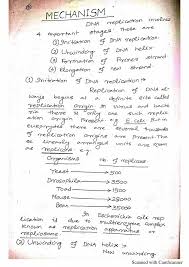 MECHANISM
DNA replication involves
4 important stages. These are
(1) Initiation of DNA replication.
(2) Unwinding of DNA helix
(3) Formation of Primer strand
(4) Elongation of new strand
(1) Initiation of DNA replication :-
Replication of DNA al-
ways begins at a definite site called
replication origin. In virus and bacte-
ria there is only one such replic-
ation origin Present. But in
eukaryotes there are several thousands
of replication origins are Present. The
linearly arranged units are known
as replicons eg
Organisms No. of replicons
Yeast 500
Drosophila 3500
Toad 15000
Mouse 25000
Bean 35000
In Escherichia coli rep
lication is due to multienzyme complex
known as replication apparatus or
replisome.
(2) Unwinding of DNA helix :-
New unwinding
Scanned with CamScanner